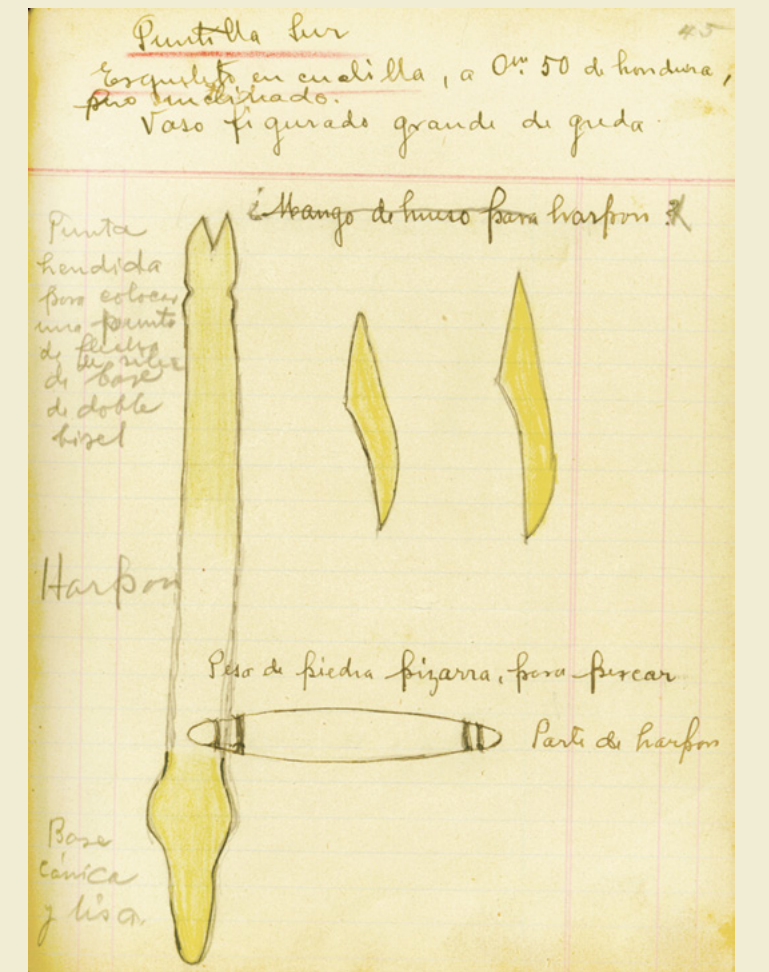 45
Puntilla Sur
Esqueleto en cuclilla, a 0m. 50 de hondura,
pero inclinado.
Vaso figurado grande de greda
¿Mango de hueso para harpon?
Punta
hendida
para colocar
una punta
de flecha
de base
de doble
bisel
Harpon
Peso de piedra pizarra, para pescar
Parte de harpon
Base
cónica
y lisa